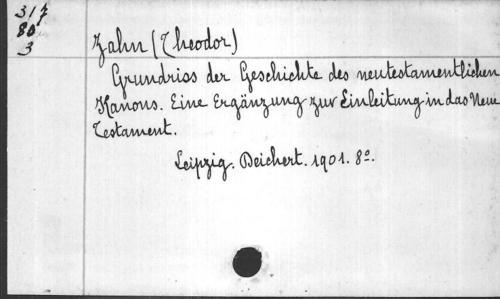 317
80
3
Zahn (Theodor)
Grundriss der Geschichte des neutestamentlichen
Kanons. Eine Ergänzung zur Einleitung in das Neue
Testament.
Leipzig. Deichert. 1901. 8º.